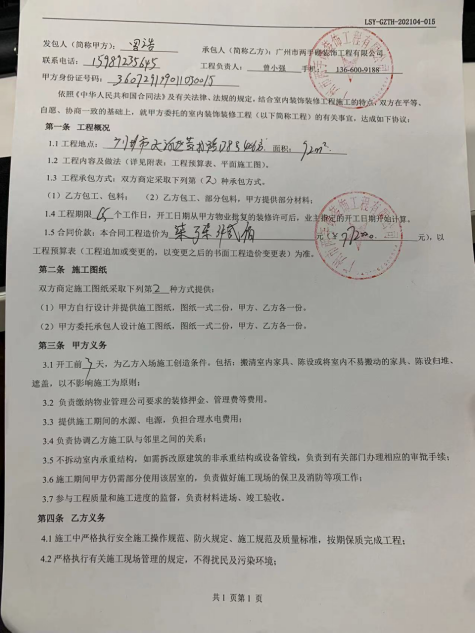 LSY-GZTH-202104-015
发包人（简称甲方）： 承包人（简称乙方）：广州市两手硬装饰工程有限公司
联系电话：15989235645 工程负责人：曾小强 手机：136-600-9188
甲方身份证号码：
依照《中华人民共和国合同法》及有关法律、法规的规定，结合室内装饰装修工程施工的特点，双方在平等、
自愿、协商一致的基础上，就甲方委托的室内装饰装修工程（以下简称工程）的有关事宜，达成如下协议：
第一条 工程概况
1.1 工程地点：广州市天河 面积：92m²
1.2 工程内容及做法（详见附表：工程预算表、平面施工图）。
1.3 工程承包方式：双方商定采取下列第（2）种承包方式。
（1）乙方包工、包料； （2）乙方包工、部分包料，甲方提供部分材料；
1.4 工程期限 个工作日，开工日期从甲方物业批复的装修许可后，业主指定的开工日期开始计算。
1.5 合同价款：本合同工程造价为 元（￥77200元），以
工程预算表（工程追加或变更的，以变更之后的书面工程造价变更表）为准。
第二条 施工图纸
双方商定施工图纸采取下列第2种方式提供：
（1）甲方自行设计并提供施工图纸，图纸一式二份，甲方、乙方各一份。
（2）甲方委托承包人设计施工图纸，图纸一式二份，甲方、乙方各一份。
第三条 甲方义务
3.1 开工前3天，为乙方入场施工创造条件。包括：搬清室内家具、陈设或将室内不易搬动的家具、陈设归堆、
遮盖，以不影响施工为原则；
3.2 负责缴纳物业管理公司要求的装修押金、管理费等费用。
3.3 提供施工期间的水源、电源，负担合理水电费用；
3.4 负责协调乙方施工队与邻里之间的关系；
3.5 不拆动室内承重结构，如需拆改原建筑的非承重结构或设备管线，负责到有关部门办理相应的审批手续；
3.6 施工期间甲方仍需部分使用该居室的，负责做好施工现场的保卫及消防等项工作；
3.7 参与工程质量和施工进度的监督，负责材料进场、竣工验收。
第四条 乙方义务
4.1 施工中严格执行安全施工操作规范、防火规定、施工规范及质量标准，按期保质完成工程；
4.2 严格执行有关施工现场管理的规定，不得扰民及污染环境；
共 1 页第 1 页